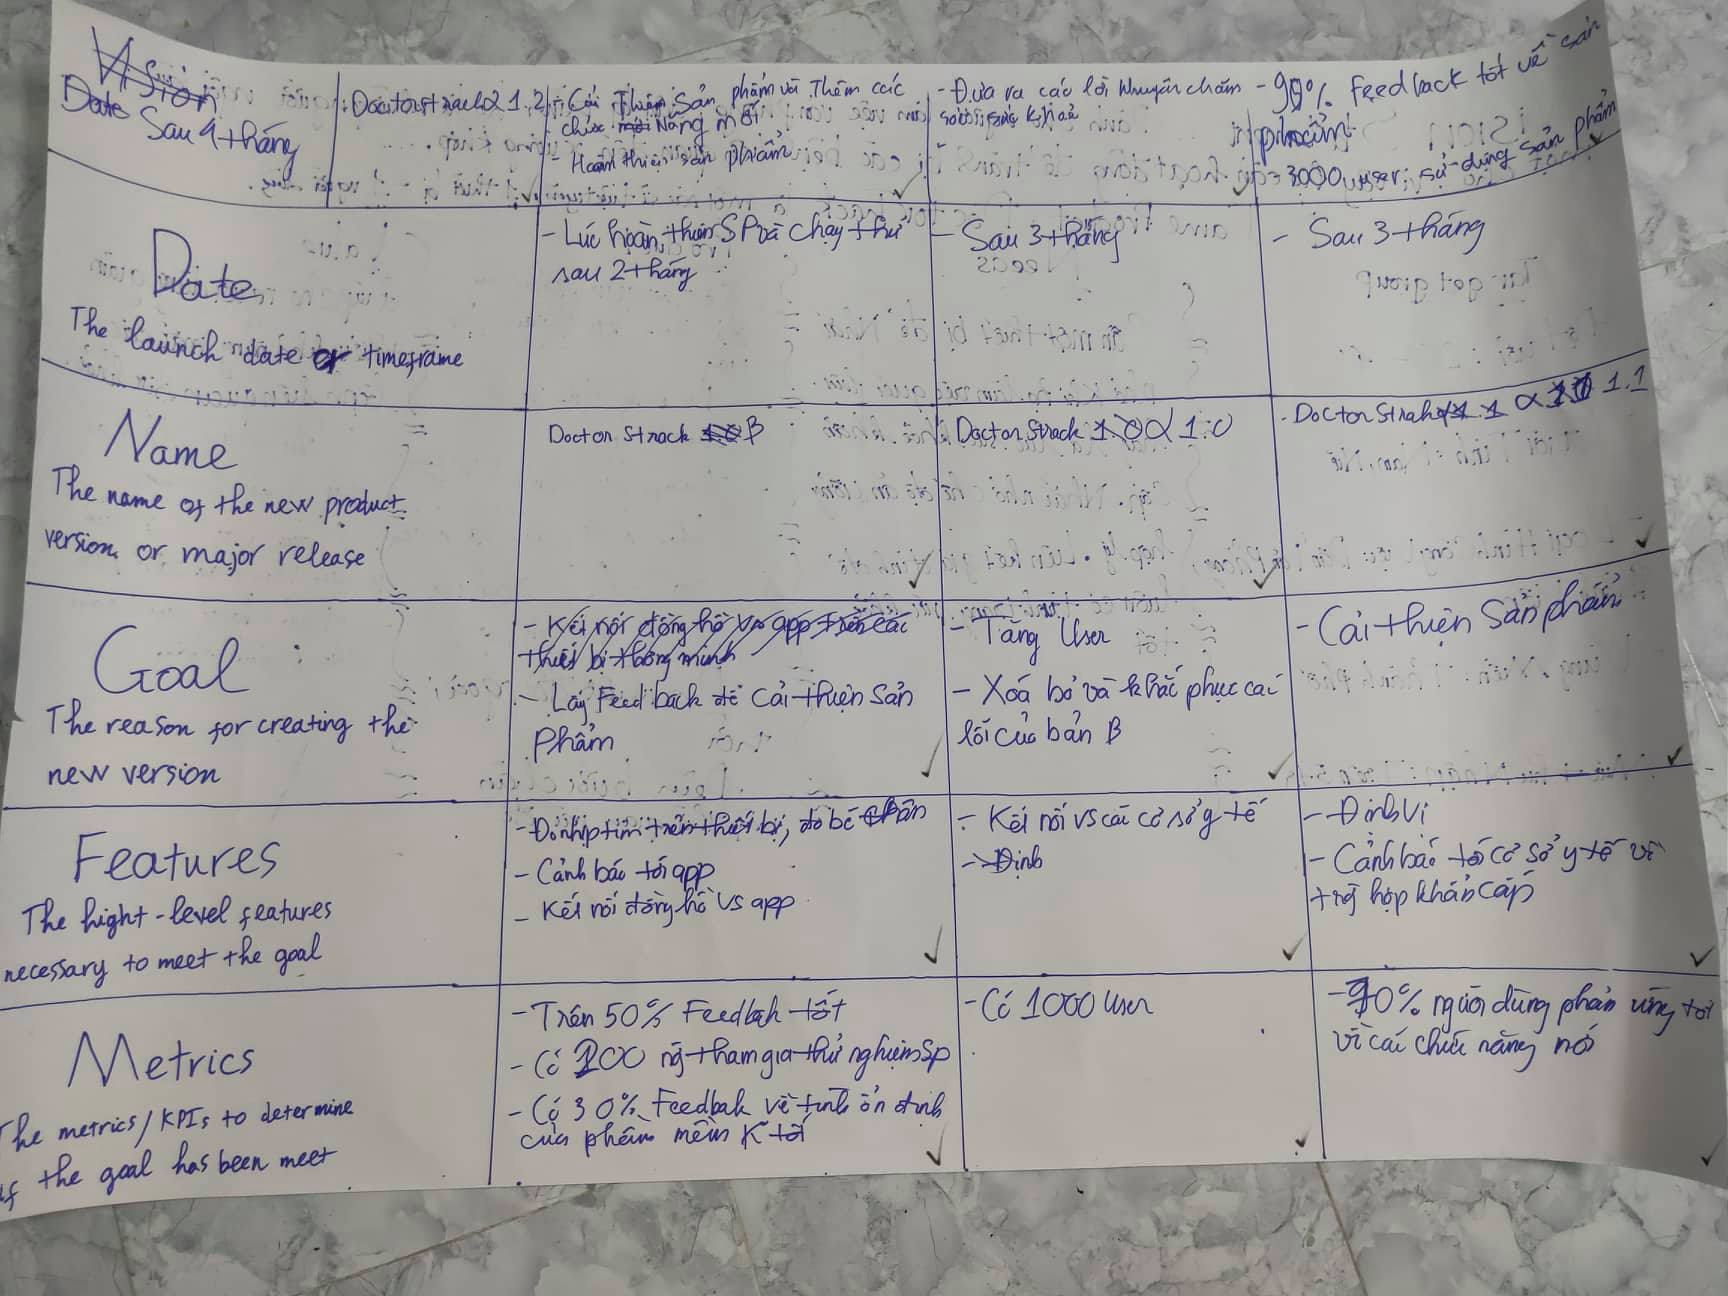 Date
Sau 4 tháng
Doctor strack α 1.2
- Cải Thiện Sản phẩm và Thêm các
chức Năng mới
- Hoàn thiện sản phẩm
- Đưa ra các lời khuyên chăm
sức khoẻ
- 90% Feedback tốt về sản
phẩm
- 3000 user sử dụng sản phẩm
Date
The launch date or timeframe
- Lúc hoàn thiện SP và chạy thử
sau 2 tháng
- Sau 3 tháng
- Sau 3 tháng
Name
The name of the new product
version or major release
Doctor Strack β
Doctor Strack α 1.0
Doctor Strack α 1.1
Goal
The reason for creating the
new version
- Kết nối đồng hồ vs app trên các
thiết bị thông minh
- Lấy Feed back để cải thiện sản
phẩm
- Tăng User
- Xoá bỏ và khắc phục các
lỗi của bản β
- Cải thiện sản phẩm
Features
The hight-level features
necessary to meet the goal
- Đo nhịp tim trên thiết bị, đo
- Cảnh báo tới app
- Kết nối đồng hồ vs app
- Kết nối vs các cơ sở y tế
- Định
- Định Vị
- Cảnh báo tới cơ sở y tế về
trg hợp khẩn cấp
Metrics
The metrics/KPIs to determine
if the goal has been meet
- Trên 50% Feedbak tốt
- Có 100 ng tham gia thử nghiệm Sp
- Có 30% Feedbak về tính ổn định
của phần mềm K tốt
- Có 1000 User
- 90% người dùng phản ứng tốt
về các chức năng mới